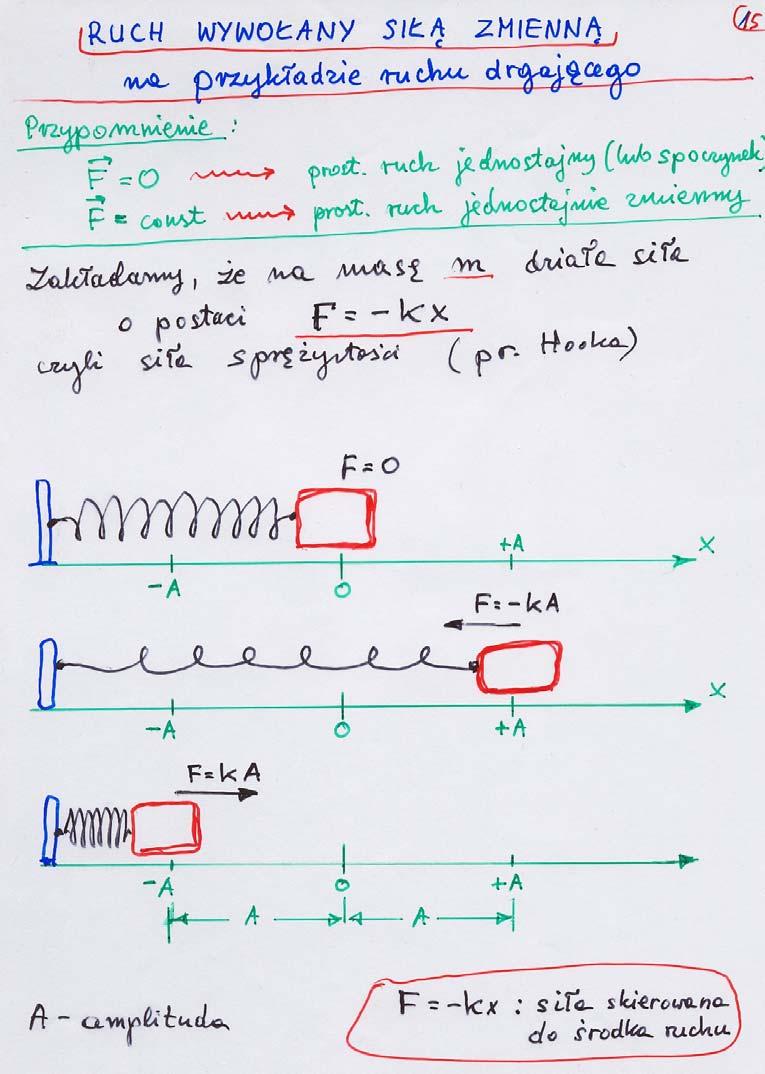 15
RUCH WYWOŁANY SIŁĄ ZMIENNĄ
na przykładzie ruchu drgającego
Przypomnienie:
F⃗ = 0 ⟿ prost. ruch jednostajny (lub spoczynek)
F⃗ = const ⟿ prost. ruch jednostajnie zmienny
Zakładamy, że na masę m działa siła
o postaci F = -kx
czyli siła sprężystości (pr. Hooka)
F=0
-A 0 +A x
F=-kA
-A 0 +A x
F=kA
-A 0 +A
A A
A - amplituda
F=-kx : siła skierowana
do środka ruchu